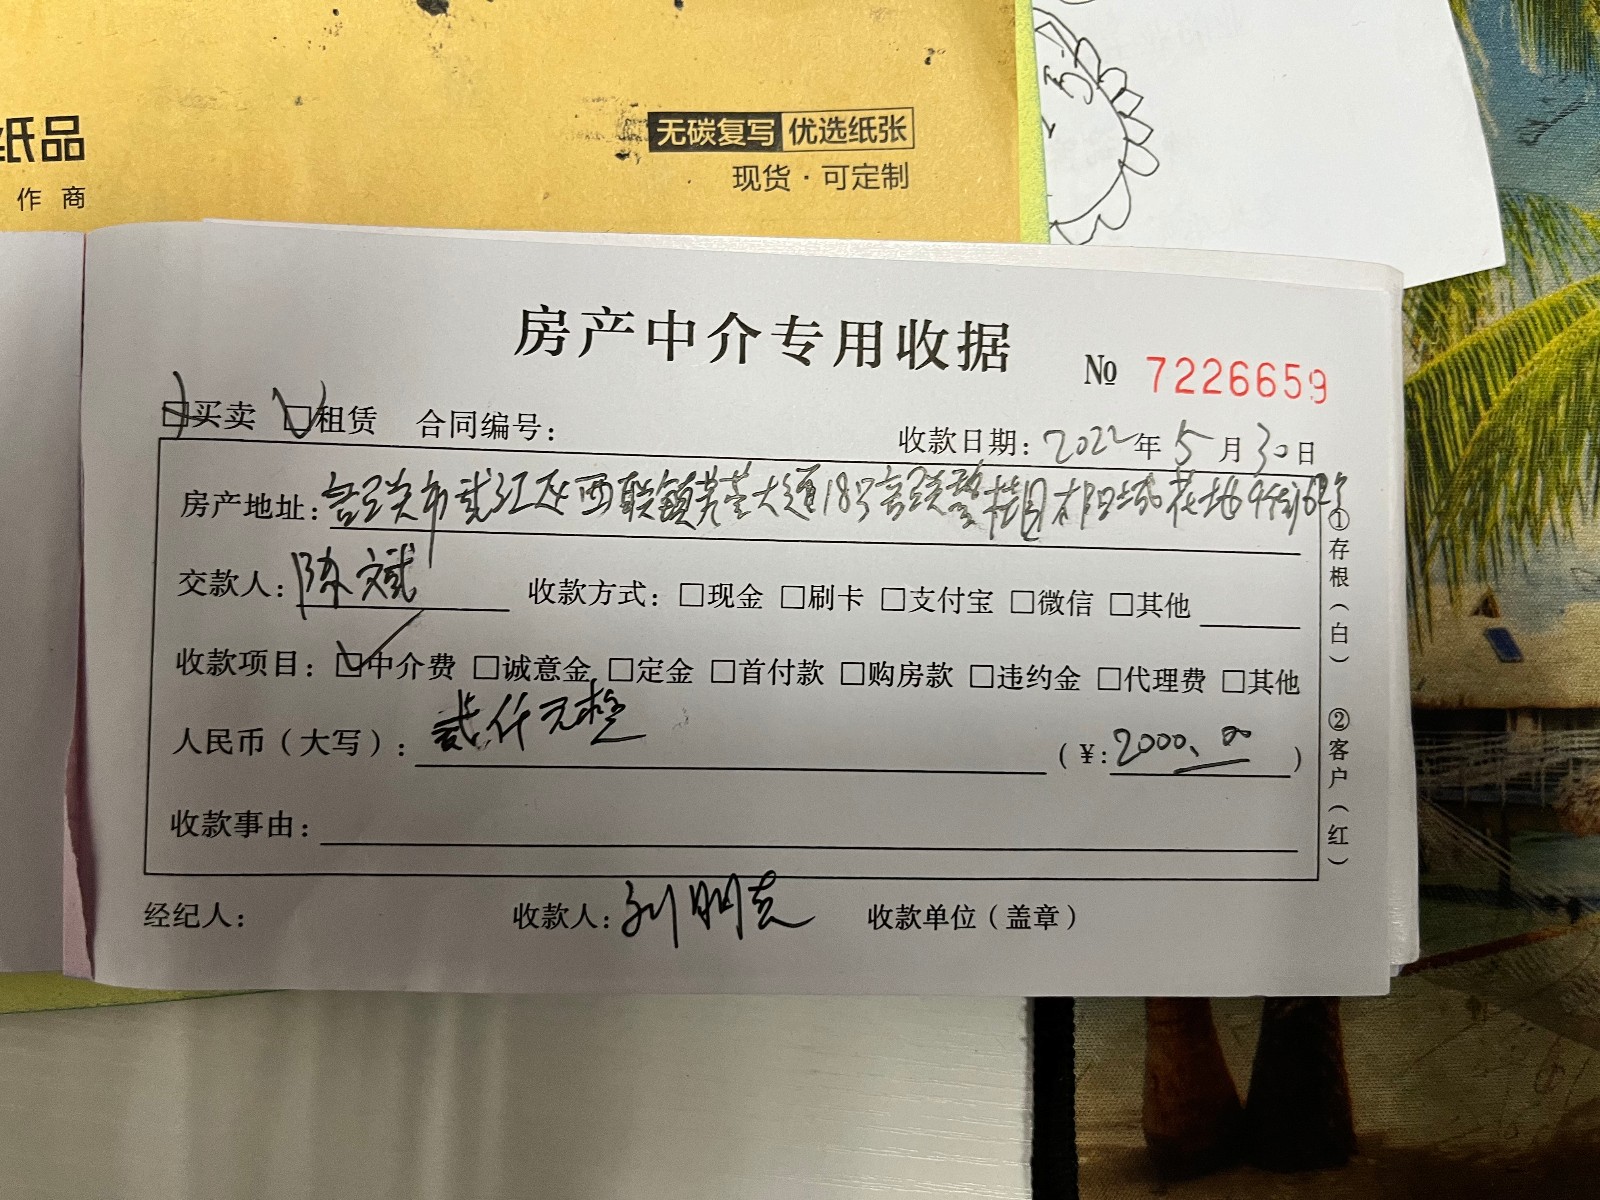 纸品
作商
无碳复写 优选纸张
现货·可定制
房产中介专用收据
№ 7226659
买卖 租赁 合同编号：
收款日期：2022年5月30日
房产地址：韶关市武江区西联镇芙蓉大道18号韶关碧桂园太阳城花地9街6号
交款人：陈斌 收款方式：□现金 □刷卡 □支付宝 □微信 □其他
收款项目：☑中介费 □诚意金 □定金 □首付款 □购房款 □违约金 □代理费 □其他
人民币（大写）：贰仟元整 （¥：2000.00）
收款事由：
经纪人： 收款人：刘明 收款单位（盖章）
①存根（白） ②客户（红）